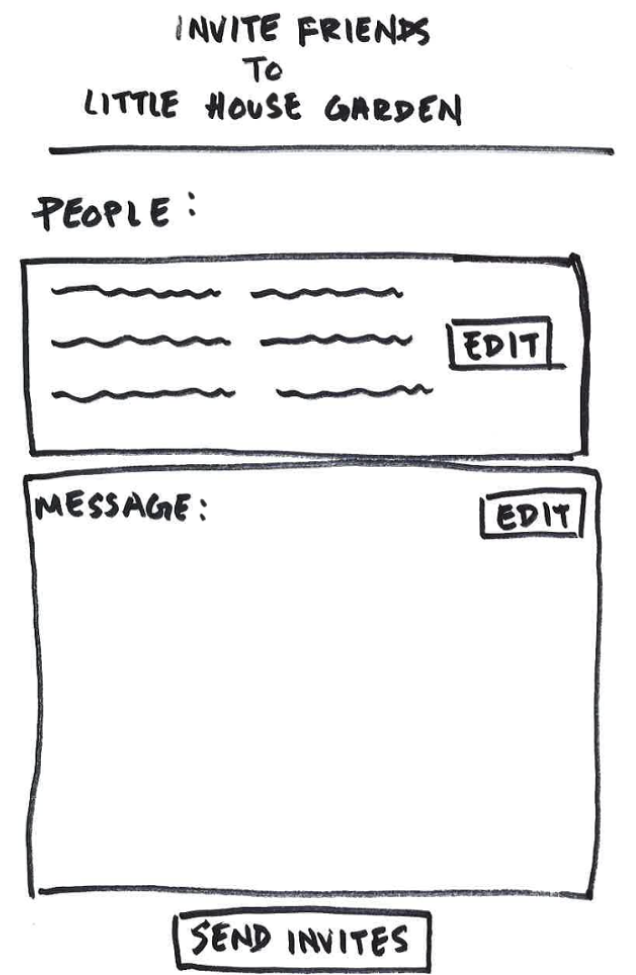 INVITE FRIENDS
TO
LITTLE HOUSE GARDEN
PEOPLE:
EDIT
MESSAGE:
EDIT
SEND INVITES